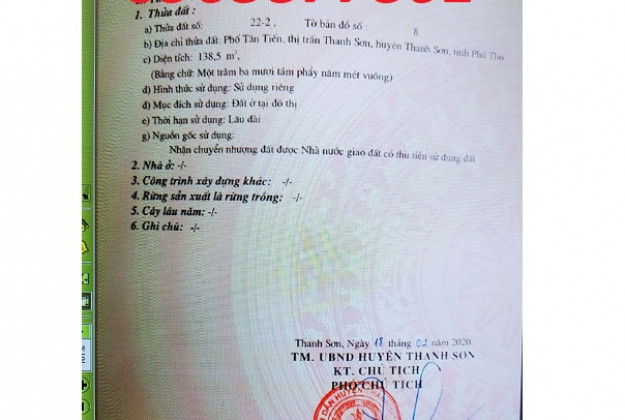 1. Thửa đất :
a) Thửa đất số: 22-2 . Tờ bản đồ số : 8
b) Địa chỉ thửa đất: Phố Tân Tiến, thị trấn Thanh Sơn, huyện Thanh Sơn, tỉnh Phú Thọ
c) Diện tích: 138,5 m²,
(Bằng chữ: Một trăm ba mươi tám phẩy năm mét vuông)
d) Hình thức sử dụng: Sử dụng riêng
đ) Mục đích sử dụng: Đất ở tại đô thị
e) Thời hạn sử dụng: Lâu dài
g) Nguồn gốc sử dụng:
Nhận chuyển nhượng đất được Nhà nước giao đất có thu tiền sử dụng đất
2. Nhà ở: -/-
3. Công trình xây dựng khác: -/-
4. Rừng sản xuất là rừng trồng: -/-
5. Cây lâu năm: -/-
6. Ghi chú: -/-
Thanh Sơn, Ngày 18 tháng 02 năm 2020
TM. UBND HUYỆN THANH SƠN
KT. CHỦ TỊCH
PHÓ CHỦ TỊCH